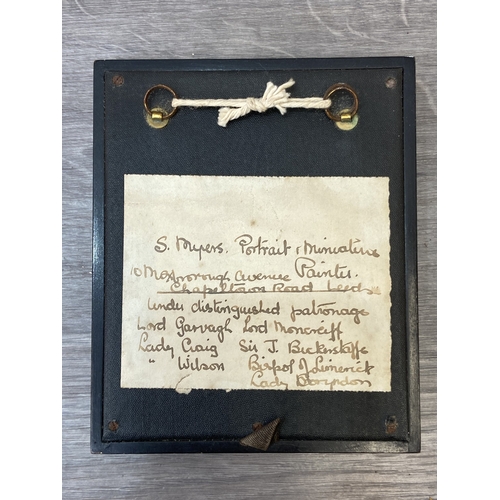 S. Myers. Portrait & Miniature
10 Mexborough Avenue Painter.
Chapeltown Road Leeds
Under distinguished patronage
Lord Garvagh Lord Moncreiff
Lady Craig Sir J. Bickerstaffe
" Wilson Bishop of Limerick
Lady